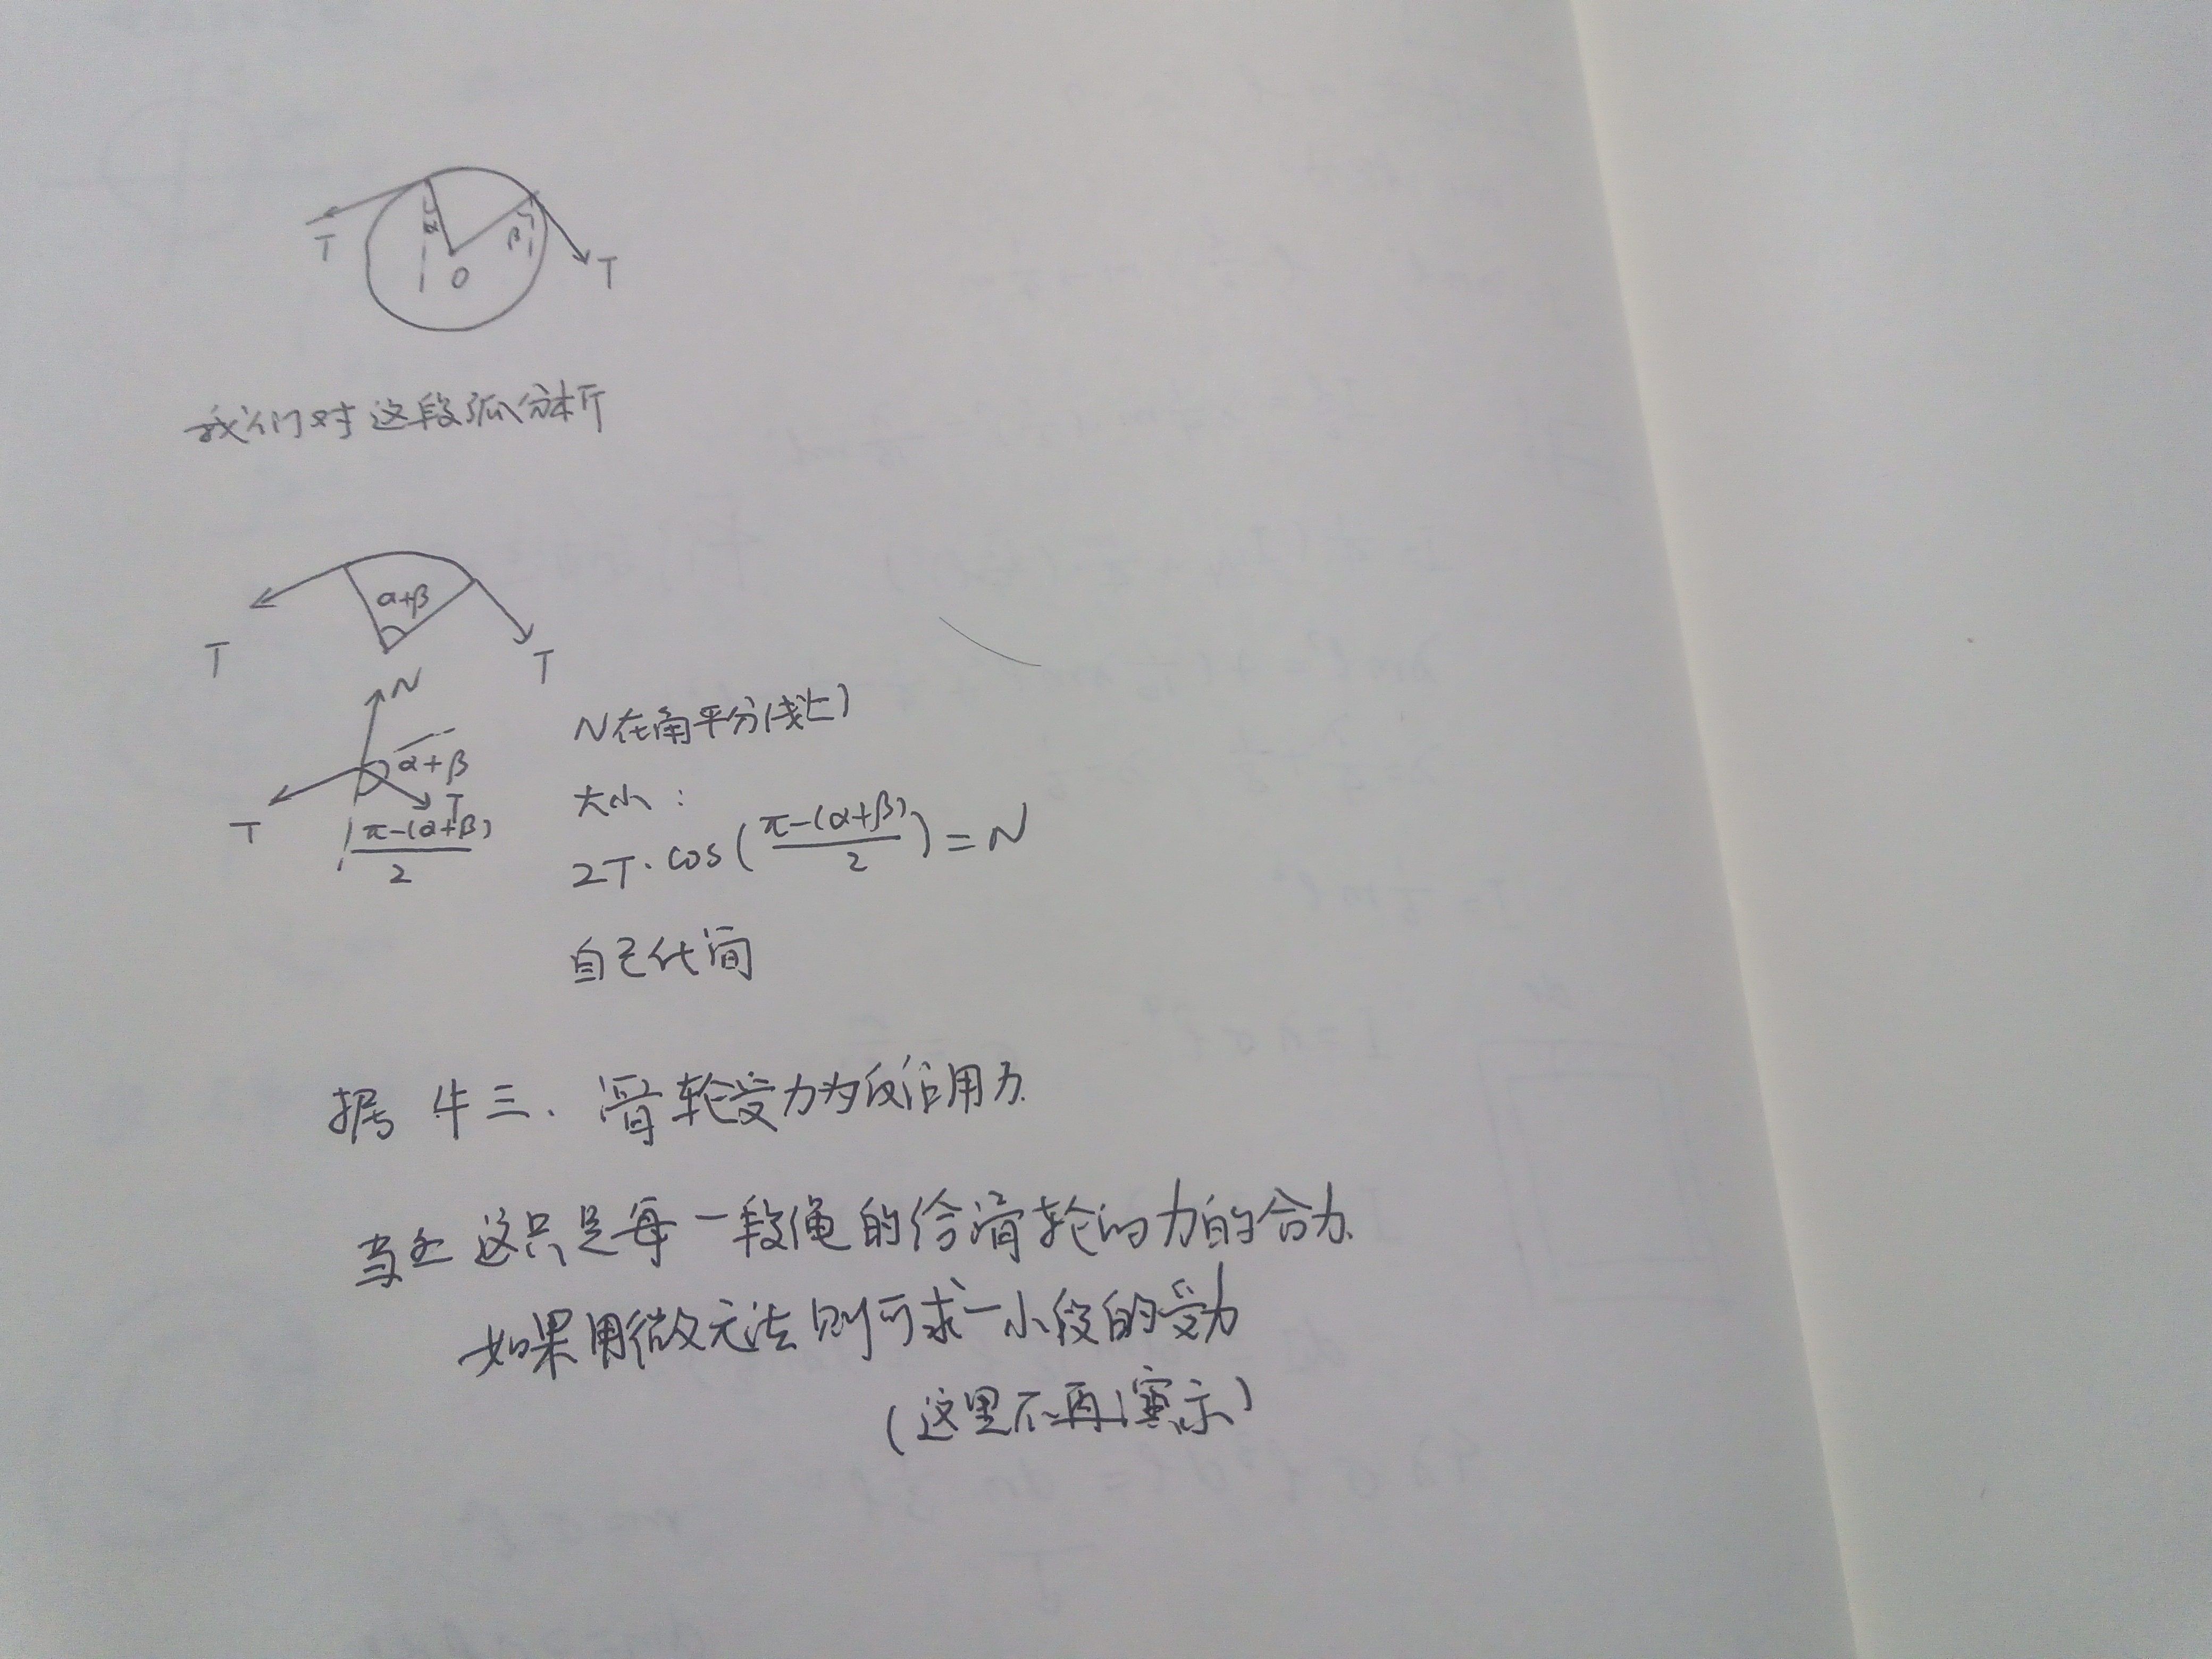 T
α
β
O
T
我们对这段弧分析
α+β
T
T
N
α+β
T
T
π-(α+β)
2
N在角平分线上
大小:
2T·cos(π-(α+β)/2)=N
自己化简
据牛三、滑轮受力为反作用力.
当然 这只是每一段绳的给滑轮的力的合力.
如果用微元法则可求一小段的受力
(这里不再演示)